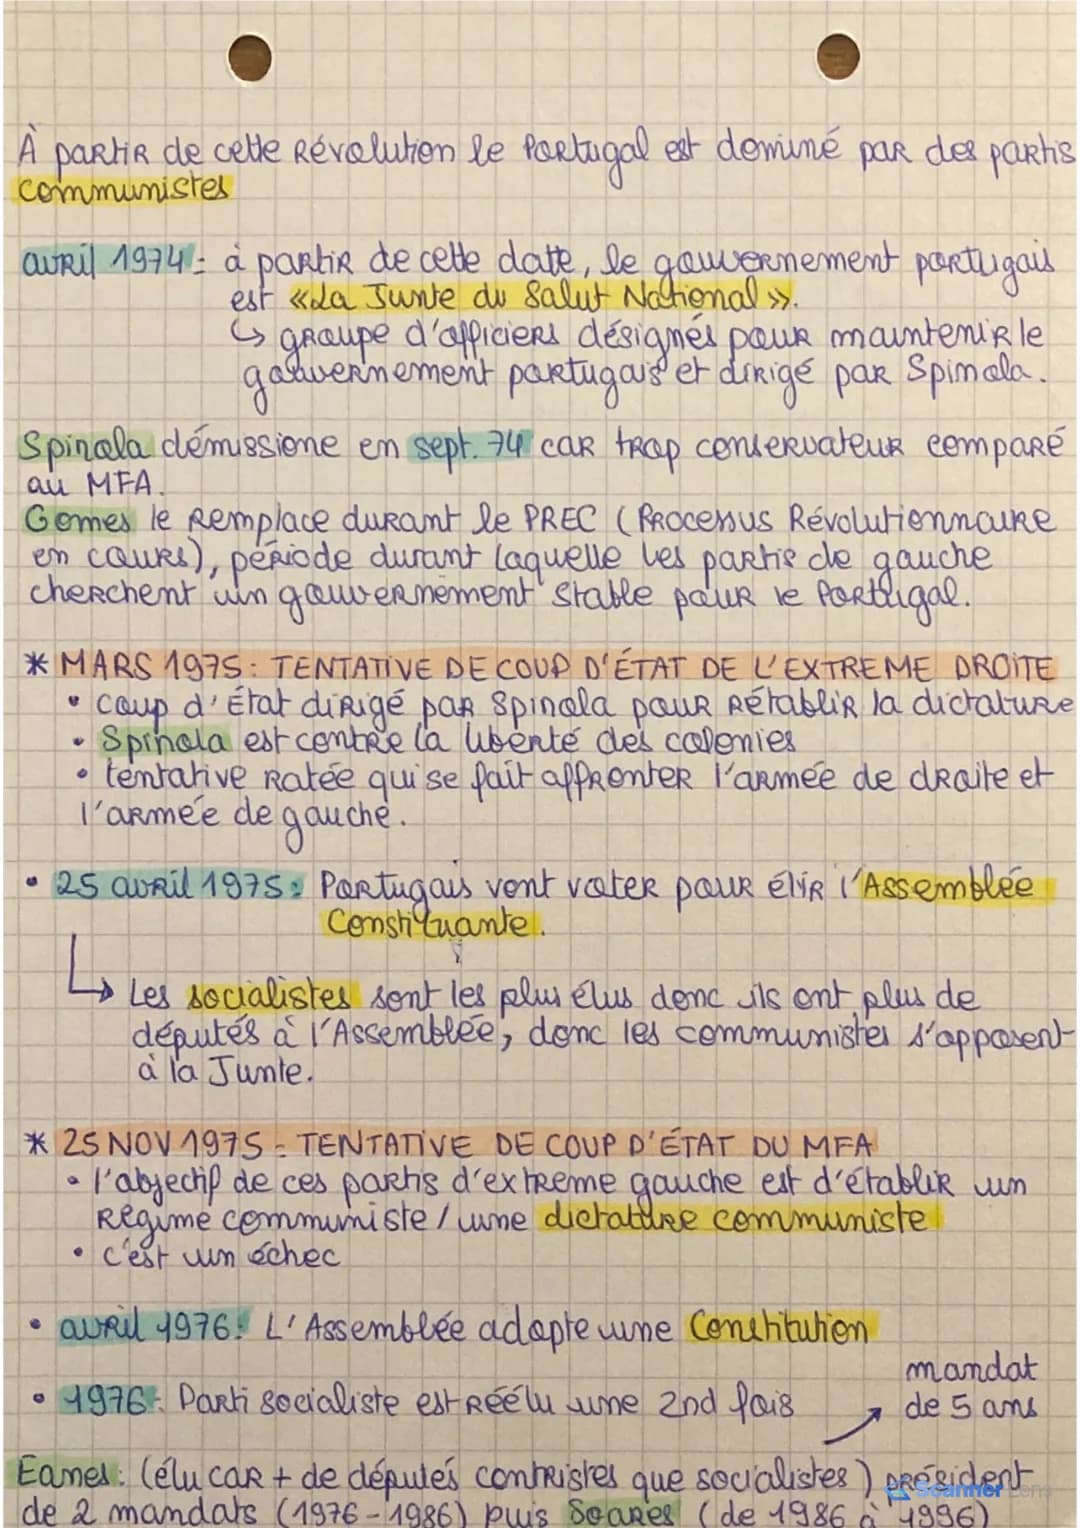 À partir de cette Révolution le Portugal est dominé par des partis
communistes
avril 1974 : à partir de cette date, le gouvernement portugais
est «La Junte du Salut National».
↳ groupe d'officiers désignés pour maintenir le
gouvernement portugais et dirigé par Spinola.
Spinola démissione en sept. 74 car trop conservateur comparé
au MFA.
Gomes le remplace durant le PREC (Processus Révolutionnaire
en cours), période durant laquelle les partis de gauche
cherchent un gouvernement stable pour le Portugal.
* MARS 1975 : TENTATIVE DE COUP D'ÉTAT DE L'EXTREME DROITE
• coup d'État dirigé par Spinola pour rétablir la dictature
• Spinola est contre la liberté des colonies
• tentative ratée qui se fait affronter l'armée de droite et
l'armée de gauche.
• 25 avril 1975 : Portugais vont voter pour élir l'Assemblée
Constituante.
↳ Les socialistes sont les plus élus donc ils ont plus de
députés à l'Assemblée, donc les communistes s'opposent
à la Junte.
* 25 NOV 1975 - TENTATIVE DE COUP D'ÉTAT DU MFA
• l'objectif de ces partis d'extreme gauche est d'établir un
régime communiste / une dictature communiste
• c'est un échec
• avril 1976 : L'Assemblée adopte une Constitution
mandat
• 1976 : Parti socialiste est réélu une 2nd fois → de 5 ans
Eames : (élu car + de députés centristes que socialistes) président
Scanner Lens
de 2 mandats (1976 - 1986) puis Soares (de 1986 à 1996)